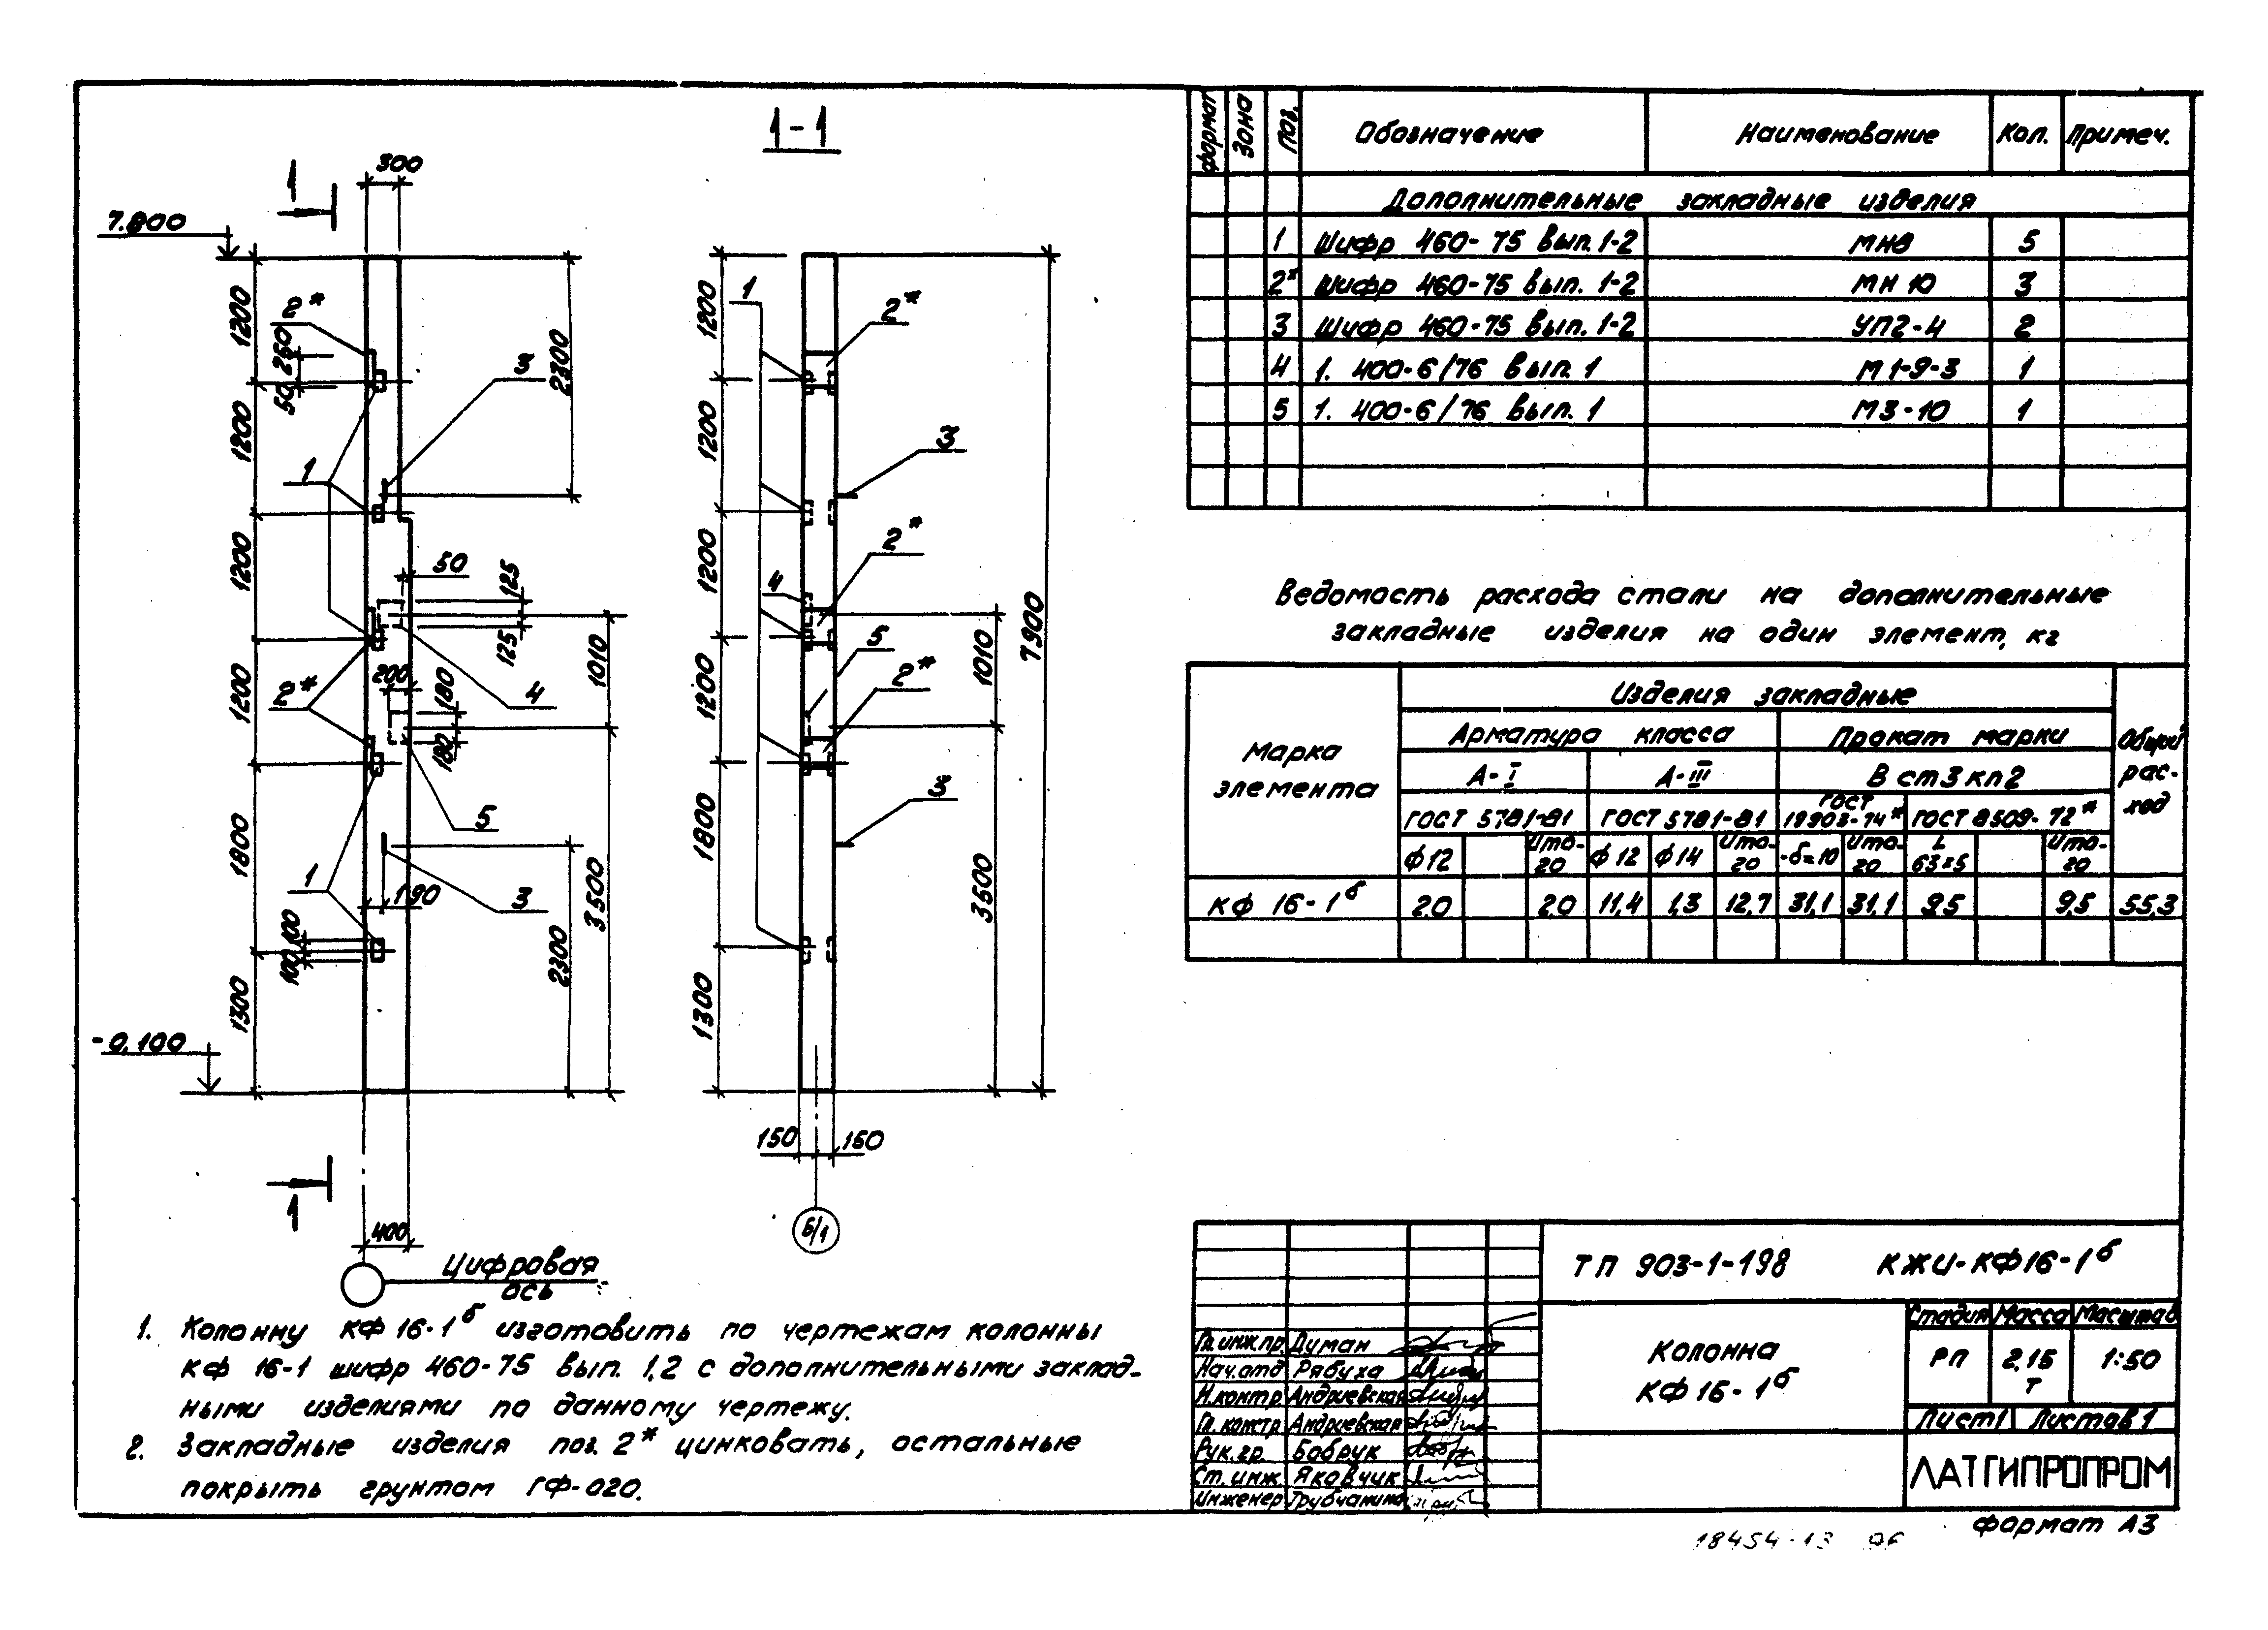 1-1
1
300
7.800
1200
2*
250
50
3
2300
1200
1
1200
50
125
125
1010
200
180
180
4
2*
1200
5
1800
1
190
3
3500
100
100
2300
1300
-0.100
1
400
Цифровая
ось
1
1200
2*
1200
3
1200
2*
4
5
1010
7900
1200
2*
1800
3
3500
1300
150
160
Б/1
1. Колонну КФ 16-1б изготовить по чертежам колонны
КФ 16-1 шифр 460-75 вып. 1,2 с дополнительными заклад-
ными изделиями по данному чертежу.
2. Закладные изделия поз. 2* цинковать, остальные
покрыть грунтом ГФ-020.
Формат Зона Поз. Обозначение Наименование Кол. Примеч.
Дополнительные закладные изделия
1 Шифр 460-75 вып. 1-2 МН8 5
2* Шифр 460-75 вып. 1-2 МН 10 3
3 Шифр 460-75 вып. 1-2 УП2-4 2
4 1. 400-6/76 вып. 1 М1-9-3 1
5 1. 400-6/76 вып. 1 М3-10 1
Ведомость расхода стали на дополнительные
закладные изделия на один элемент, кг
Марка элемента
Изделия закладные
Общий рас-ход
Арматура класса Прокат марки
А-I А-III В ст3 кп2
ГОСТ 5781-81 ГОСТ 5781-81 ГОСТ 19903-74* ГОСТ 8509-72*
ф12 Ито-го ф12 ф14 Ито-го -б=10 Ито-го L 63x5 Ито-го
КФ 16-1б 2.0 2.0 11,4 1,3 12,7 31,1 31,1 9,5 9,5 55,3
ТП 903-1-198 КЖИ-КФ16-1б
Колонна
КФ16-1б
Стадия Масса Масштаб
РП 2,15 т 1:50
Лист 1 Листов 1
ЛАТГИПРОПРОМ
Гл. инж.пр. Думан
Нач.отд Рябуха
Н.контр Андриевская
Гл. констр Андриевская
Рук.гр. Бобрук
Ст.инж. Яковчик
Инженер Трубчанина
Формат А3
18454-13